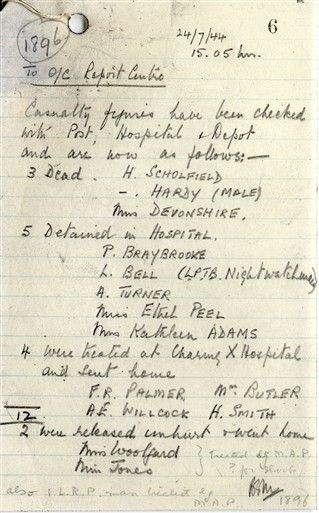 6
1896
24/7/44
15.05 hrs.
To O/C Report Centre
Casualty figures have been checked
with Post, Hospital & Depot
and are now as follows:—
3 Dead. H. SCHOLFIELD
-. HARDY (MALE)
Miss DEVONSHIRE.
5 Detained in HOSPITAL.
P. BRAYBROOKE
L. BELL (LPTB. Nightwatchman)
A. TURNER
Miss Ethel PEEL
Miss Kathleen ADAMS
4 were treated at Charing X Hospital
and sent home
F.R. PALMER Mrs BUTLER
A.E. WILLCOCK H. SMITH
12
2 were released unhurt & went home
Miss Woolfard } treated at M.A.P.
Miss Jones ? for shock
also 1 L.R.P. man treated at
M.A.P
1896